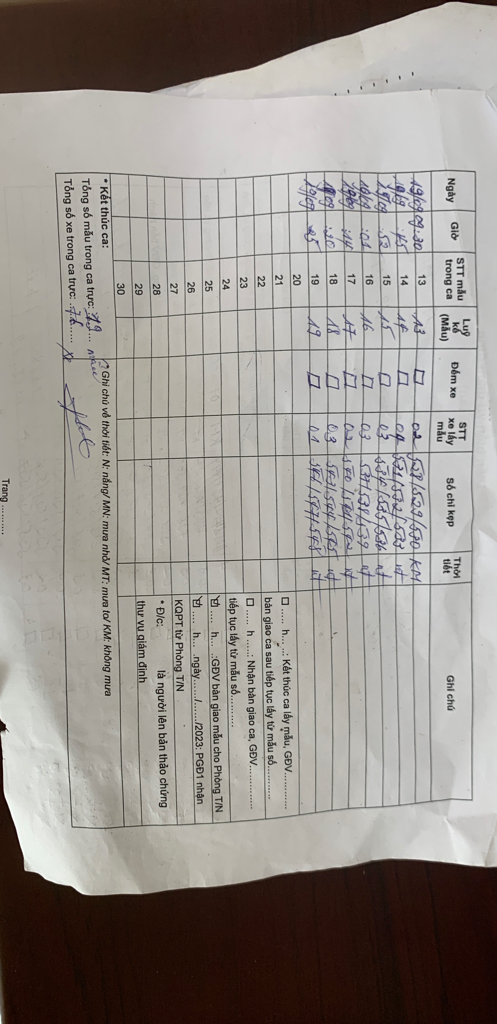 Ngày Giờ STT mẫu trong ca Luỹ kế (Mẫu) Đếm xe STT xe lấy mẫu Số chì kẹp Thời tiết Ghi chú
19/09 09:30 13 13 ☐ 02 528/529/530 KM
19/09 :45 14 14 ☐ 04 531/532/533 nt
19/09 :52 15 15 ☐ 03 534/535/536 nt
19/09 :01 16 16 ☐ 03 537/538/539 nt
19/09 :14 17 17 ☐ 02 540/541/542 nt
19/09 :20 18 18 ☐ 03 543/544/545 nt
19/09 :25 19 19 ☐ 01 nt
20
21 ☐ ..... h.... ...: Kết thúc ca lấy mẫu, GĐV............
22 bàn giao ca sau tiếp tục lấy từ mẫu số...........
23 ☐ ..... h .....: Nhận bàn giao ca, GĐV...............
24 tiếp tục lấy từ mẫu số..........
25 ☑ .... h... ..:GĐV bàn giao mẫu cho Phòng T/N
26 ☑ .... h... .ngày....../....../2023: PGĐ1 nhận
27 KQPT từ Phòng T/N
28 * Đ/c: là người lên bản thảo chứng
29 thư vụ giám định
30
* Kết thúc ca: Ghi chú về thời tiết: N: nắng/ MN: mưa nhỏ/ MT: mưa to/ KM: không mưa
Tổng số mẫu trong ca trực: 19 mẫu
Tổng số xe trong ca trực: 76 xe
Trang ..........